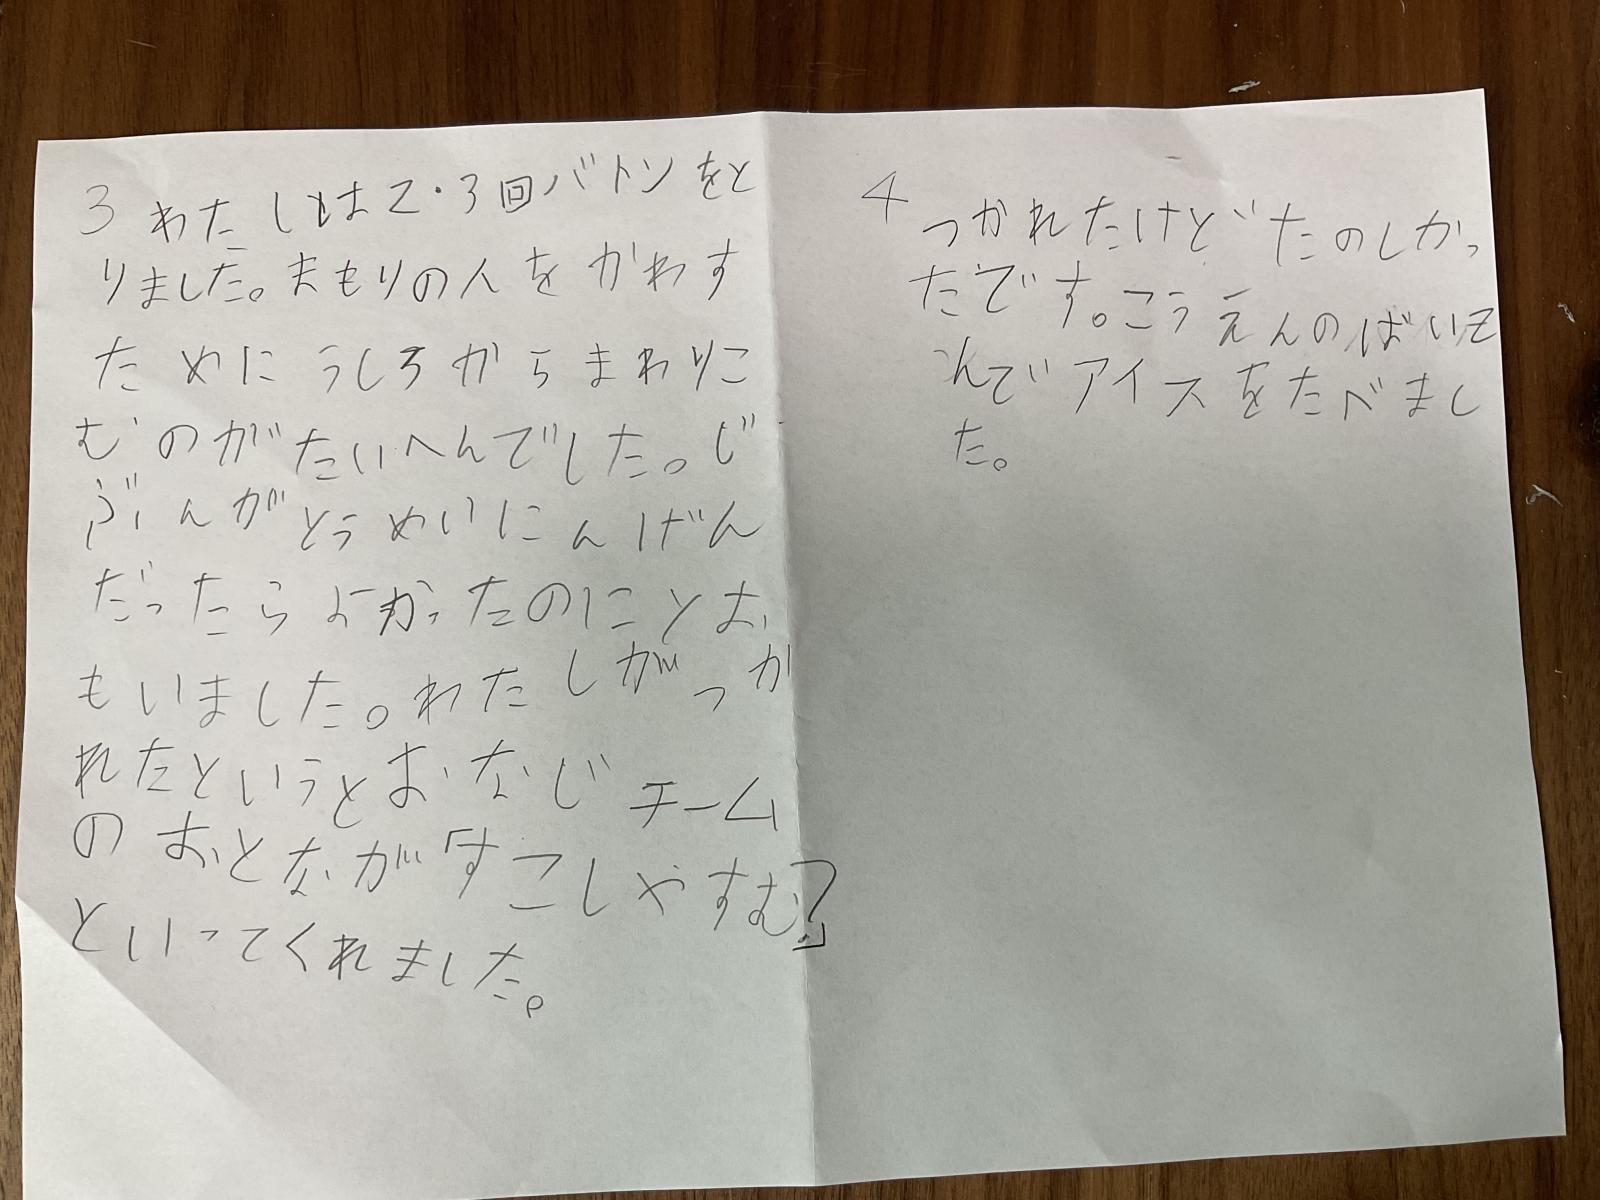 3 わたしは2・3回バトンをと
りました。まもりの人をかわす
ためにうしろからまわりこ
むのがたいへんでした。じ
ぶんがとうめいにんげん
だったらよかったのにとお
もいました。わたしがつか
れたというとおなじチーム
のおとなが「すこしやすむ?」
といってくれました。
4 つかれたけどたのしかっ
たです。こうえんのばいて
んでアイスをたべまし
た。